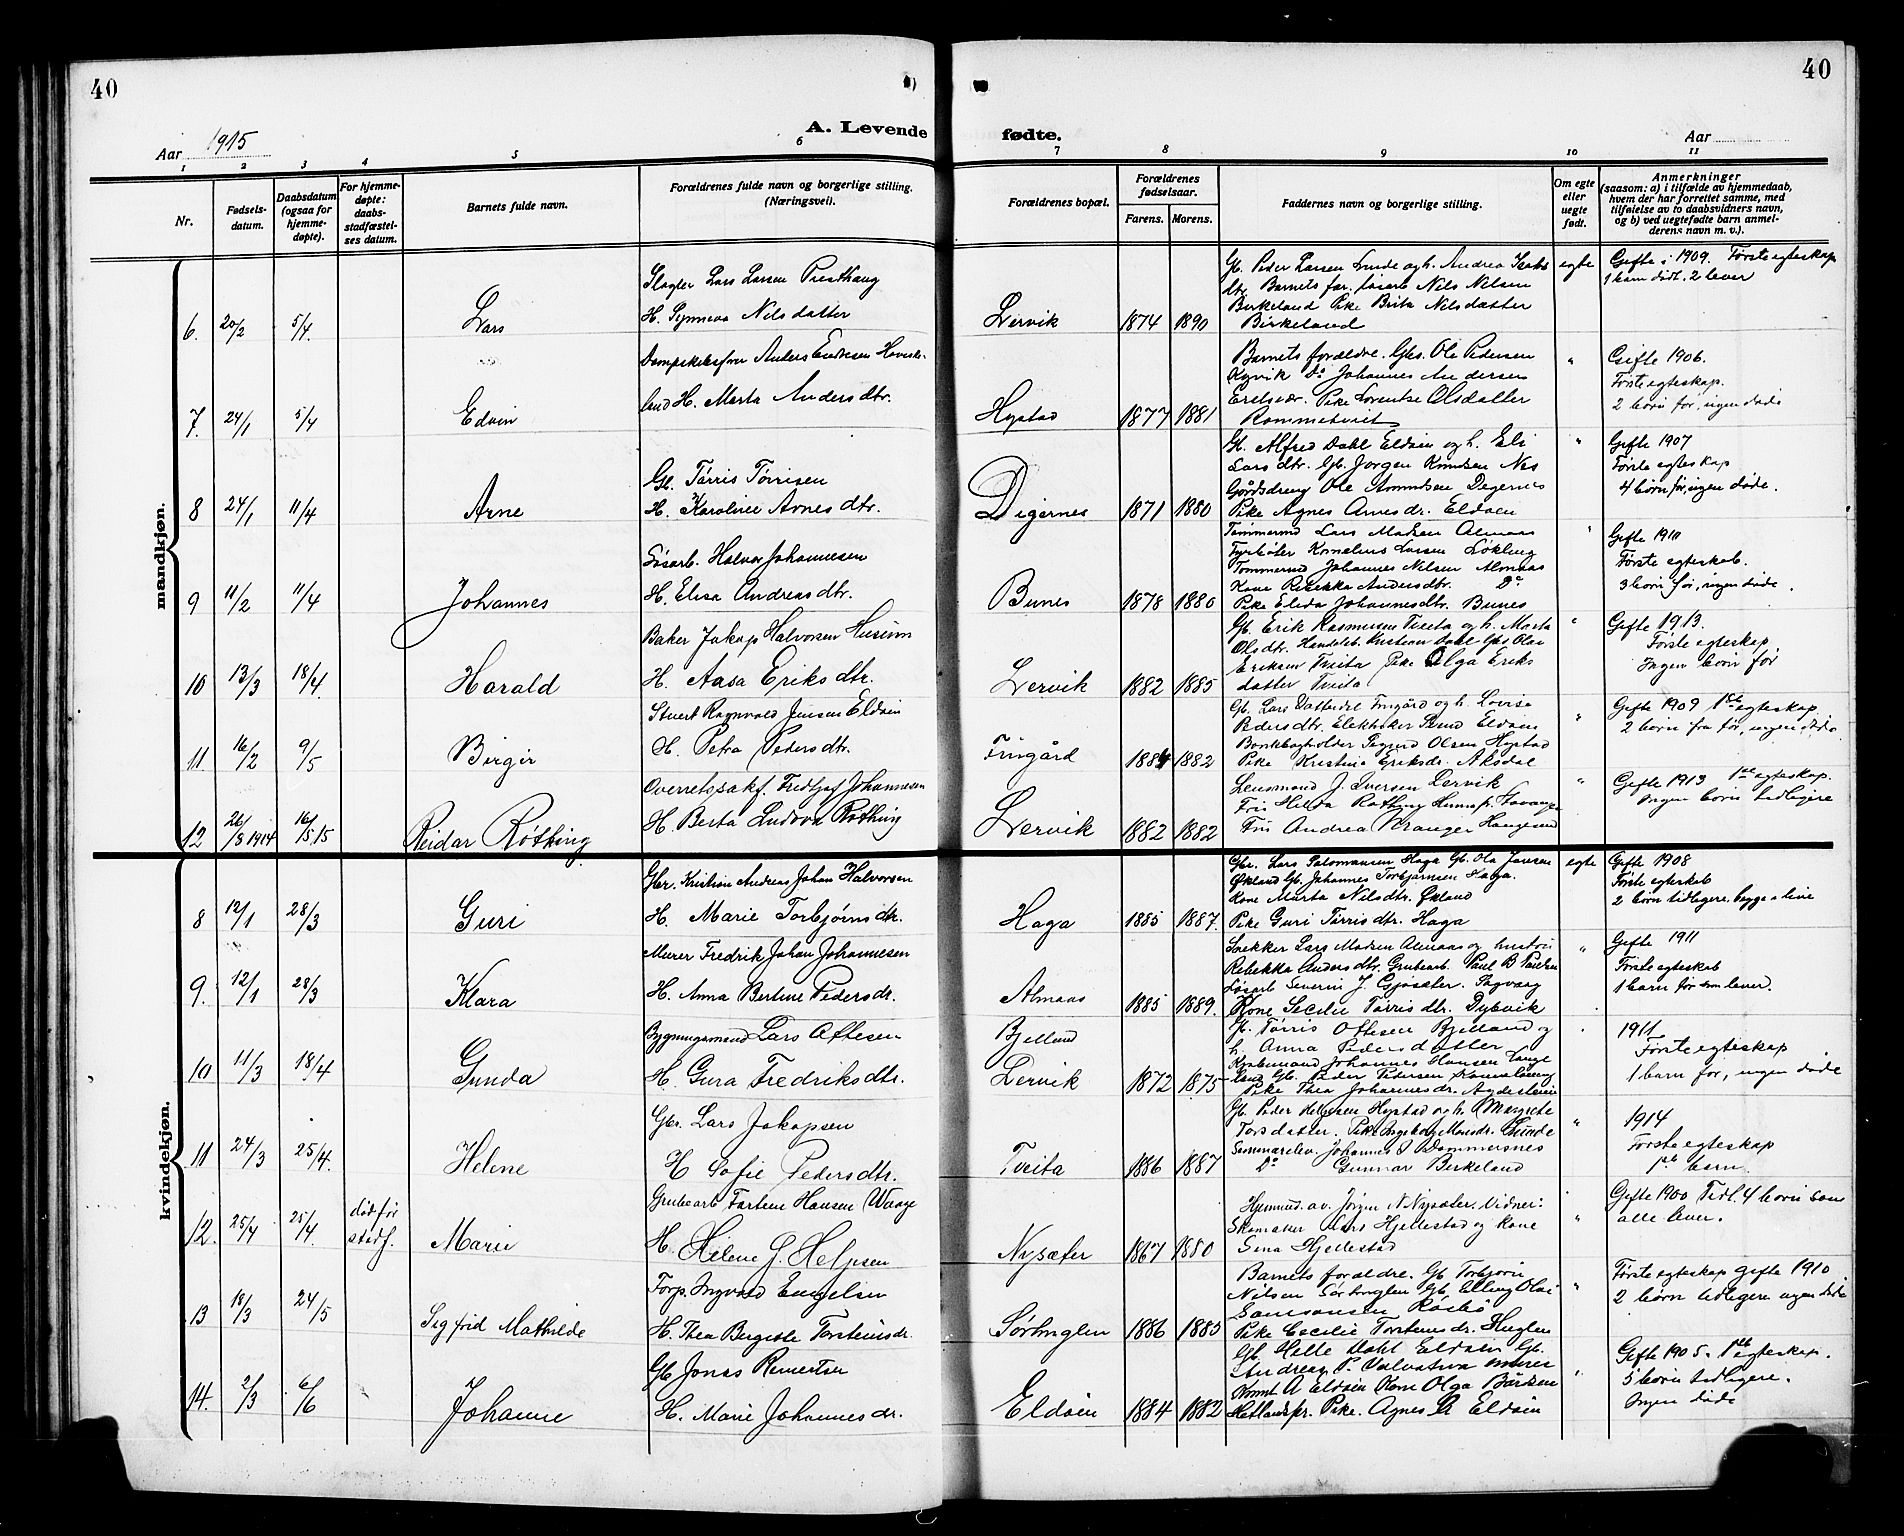 40
40
A. Levende fødte.
Aar 1915
Aar
1 2 3 4 5 6 7 8 9 10 11
Nr.
Fødsels-datum.
Daabsdatum (ogsaa for hjemme-døpte).
For hjemme-døpte: daabs-stadfæstel-ses datum.
Barnets fulde navn.
Forældrenes fulde navn og borgerlige stilling. (Næringsvei).
Forældrenes bopæl.
Forældrenes fødselsaar.
Farens. Morens.
Faddernes navn og borgerlige stilling.
Om egte eller uegte født.
Anmerkninger
(saasom: a) i tilfælde av hjemmedaab, hvem der har forrettet samme, med tilføielse av to daabsvidners navn, og b) ved uegtefødte barn anmel-derens navn m. v.).
mandkjøn.
6. 20/2 5/4. Lars
Slagter Lars Larsen Presthaug
H. Synneva Nilsdatter
Lervik 1874 1890
Gb. Peder Larsen Lunde og h. Andrea
dtr. Barnets far. Løsarb Nils Nilsen
Birkeland Pike Brita Nilsdatter
Birkeland
egte
Gifte i 1909. Første egteskap
1 barn dødt. 2 lever
7. 24/1 5/4 Edvin
Anders Endresen
land H. Marta Andersdtr.
Hystad 1877 1881
Barnets forældre. Gbs. Ole Pedersen
Kyvik Do Johannes Andersen
Pike Lorentze Olsdatter
Rommetveit
"
Gifte 1906.
Første egteskap.
2 børn før, ingen døde
8 24/1 11/4 Arne
Gb. Tørris Tørrisen
H. Karoline Arnesdtr.
Digernes 1871 1880
Gb. Alfred Dahl Eldøen og h. Eli
Larsdtr. Gb. Jørgen Knudsen Nes
Gårdsdreng Ole Amundsen Degernes
Pike Agnes Arnesdr. Eldøen
"
Gifte 1907
Første egteskap
4 børn før, ingen døde.
9 11/2 11/4 Johannes
Løsarb. Halvor Johannesen
H. Elisa Andreasdtr.
Bunes 1878 1880
Tømmermd Lars Madsen Almaas
Fyrbøter Kornelius Larsen Løkling
Tømmermd Johannes Nilsen Almaas
Kone Rebekka Andersdtr. Do
Pike Elida Johannesdtr. Bunes
"
Gifte 1910
Første egteskab.
3 børn før, ingen døde.
10 13/3 18/4. Harald
Baker Jakop Halvorsen Husum
H. Aasa Eriksdtr.
Lervik 1882 1885
Gb. Erik Rasmussen Tveita og h. Marta
Olsdtr. Handelsb. Kristian Dahl Gbs Olai
Eriksen Tveita Pike Olga Eriks
datter Tveita
"
Gifte 1913.
Første egteskap.
Ingen børn før
11. 16/2 9/5 Birger
Stuert Ragnvald Jensen Eldøen
H. Petra Pedersdtr.
Frugård 1884 1882
Gb. Lars Frugård og h. Lovise
Pedersdtr. Elektriker Eldøen
Bankbogholder Sigurd Olsen Hystad
Pike Kristine Eriksdr. Aksdal
"
Gifte 1909 1ste egteskap
2 børn fra før, ingen døde
12 26/8 1914 16/5 15 Reidar Røthing
Overretssakf. Fridtjof Johannesen
H. Berta Ludova Røthing
Lervik 1882 1882
Lensmand J. Iversen Lervik
Fru Helda Røthing
Fru Andrea Kranger Haugesund
"
Gifte 1913 1ste egteskap.
Ingen børn tidligere
kvindekjøn.
8 12/1 28/3 Guri
Gbr. Kristian Andreas Johan Halvorsen
H. Marie Torbjørnsdtr.
Haga 1885 1887.
Gbr. Lars Salomonsen Haga Gb. Ola Jansen
Økland Gb. Johannes Torbjørnsen Haga.
Kone Marta Nilsdtr. Økland
Pike Guri Tørrisdtr. Haga
egte
Gifte 1908
Første egteskab
2 børn tidligere, begge i live
9. 12/1 28/3 Klara
Murer Fredrik Johan Johannesen
H. Anna Bertine Pedersdr.
Almaas 1885 1889.
Snekker Lars Madsen Almaas og hustru
Rebekka Andersdtr. Grubearb. Paul B Paulsen
Løsarb Severin J. Gjøsæter. Sagvaag
Kone Secilie Tørrisdtr. Dybvik
"
Gifte 1911
Første egteskab
1 barn før som lever.
10 11/3 18/4 Gunda
Bygningsmand Lars Oftesen
H. Gura Fredriksdtr.
Bjelland
Lervik 1872 1875
Gb. Tørris Oftesen Bjelland og
h. Anna Pedersdatter
Johannes Hansen Lange
land Gb. Peder Pedersen
Pike Thea Johannesdr.
1911
Første egteskap
1 barn før, ingen døde
11 24/3 25/4. Helene
Gbr. Lars Jakopsen
H Sofie Pedersdtr.
Tveita 1886 1887
Gb. Peder Helgesen Hystad og h. Margrete
Torsdatter. Pike Ingeborg Monsdr. Lunde
Seminarelev. Johannes P Dommersnes
Do Gunnar Birkeland
"
1914
Første egteskap
1ste barn
12. 25/4 25/4. død før stadf. Marie
Grubearb Torstein Hansen Waage
H. Helene G. Helgesen
Nysæter 1867 1880
Hjemmd. av Jørgen N Nysæter. Vidner:
Skomaker Lars Hjellestad og kone
Sina Hjellestad
"
Gifte 1900 Tidl. 4 børn som
alle lever.
13 18/3 24/5 Sigfrid Mathilde
Forp. Ingvald Engelsen
H. Thea Bergitte Torsteinsdr.
Sørhuglen 1886 1885
Barnets forældre. Gb Torbjørn
Nilsen Sørhuglen Gb. Elling Olai
Samsonsen Røsbø
Pike Cecilie Torsteinsdr. Huglen
"
Første egteskap gifte 1910
2 børn tidligere ingen døde
14. 2/3 6/6 Johanne
Gb Jonas Reinertsen
H. Marie Johannesdr.
Eldøen 1884 1882
Gb. Helle Dahl Eldøen Gb.
Andreas P.
A Eldøen Kone Olga Bårdsen
Pike. Agnes A Eldøen
Gifte 1905. 1ste egteskap.
5 børn tidligere.
Ingen døde